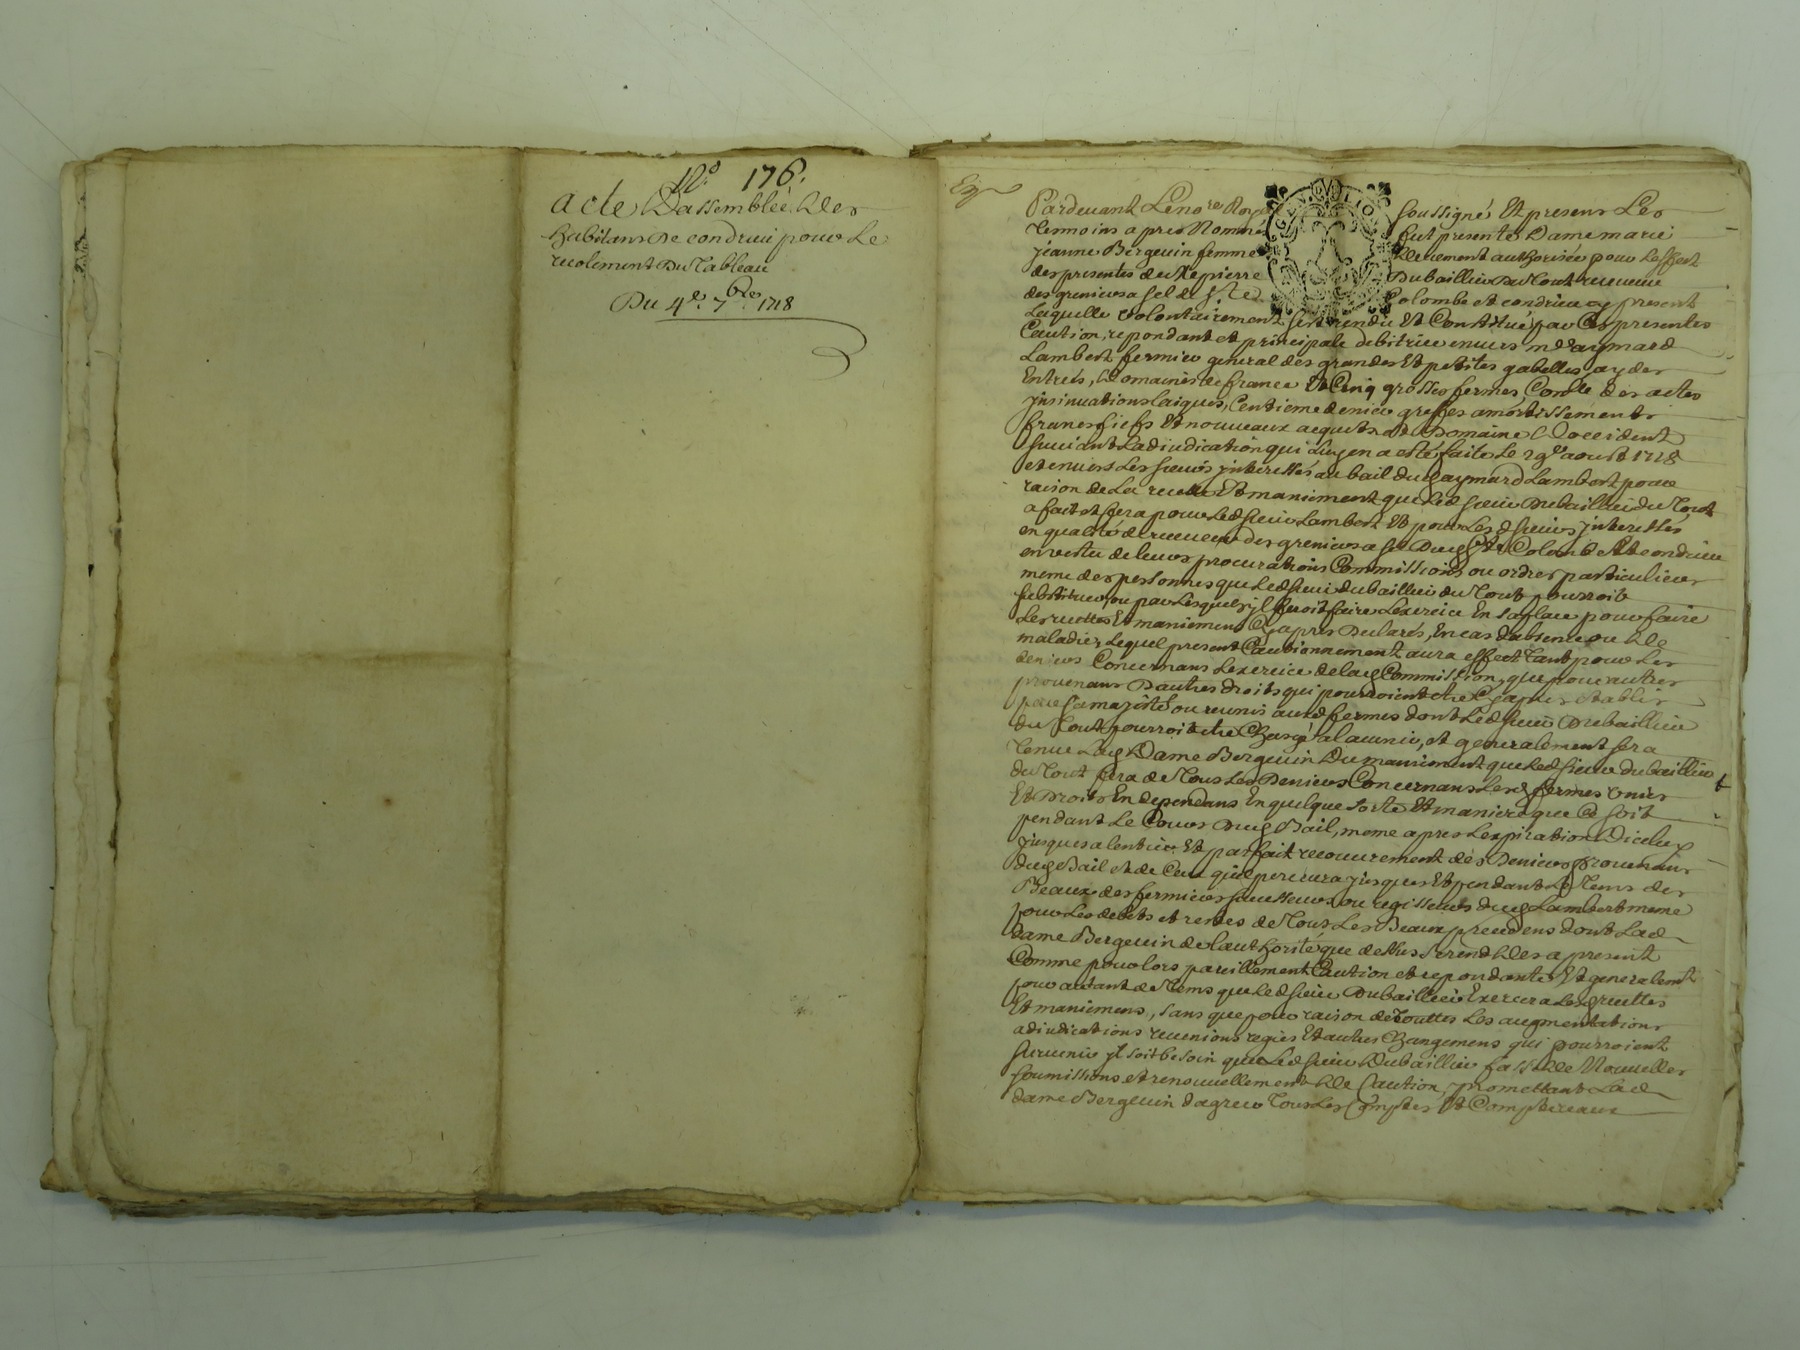 N.º 176.
acte Dassemblée des
habitans de condrieu pour le
recolement du Tableau
Du 4.e 7.bre 1718
Exp
Pardevant Le no.re Royal soussigné Et presens Les
Temoins apres Nommés fut presente Dame marie
jeanne Bergeuin femme deuement authorisée pour Leffect
des presentes de Me pierre Dubaillieu Du Tout receueur
des greniers a sel de s.te Colombe et condrieu cy present
Laquelle volontairement sest rendüe Et Constitué par Ces presentes
Caution, repondante et principale debitrice enuers m.e aymard
Lambert fermier general des grandes Et petites gabelles, aydes
Entrés, Domaines de france Et Cinq grosses fermes, Conlle des actes
jnsinuations laiques, Centieme denier greffes amortissements
francs fiefs Et nouueaux acquets et Domaine Doccident
suiuant Ladjudication qui Luy en a esté faite Le 29.e aoust 1718
et enuers Les sieurs jnteressés au bail dud aymard Lambert pour
raison de La recette Et maniement que Led sieur Dubaillieu du Tout
a fait et fera pour Led sieur Lambert Et pour Les d sieurs jnteressés
en qualité de receueur des greniers a sel Dud s.te Colombe Et de condrieu
en vertu de leurs procurations Commissions ou ordres particuliers
meme des personnes que Led sieur dubaillieu du Tout pourroit
substituer ou par Lesquels jl feroit faire Lexercice En sa place pour faire
Les recettes Et maniemens Cy apres Declarés, En cas dabsence ou de
maladie, Lequel present Cautionnement aura effect Tant pour Les
deniers Concernans Lexercice de lad Commission, que pour autres
prouenans Dautres droits qui pourroient etre Cy apres etablis
par sa majesté ou reunis aux d fermes dont Led sieur Dubaillieu
du Tout pourroit etre Chargé a lauenir, et generalement sera
Tenue Lad Dame Bergeuin Du maniement que Led sieur dubaillieu
du Tout fera de Tous Les Deniers Concernans Lesd fermes vnies
Et Droits En dependans En quelque sorte Et maniere que Ce soit
pendant Le Cours Dud Bail, meme apres Lexpiration Diceluy
jusques a lentier Et parfait recouurement des Deniers prouenans
dud Bail et de Ceux quil perceura jusques Et pendant Le Tems des
Beaux des fermiers successeurs ou regisseurs dud Lambert meme
pour Les debets et restes de Tous Les Beaux precedens dont Lad
Dame Bergeuin de lauthorité que dessus se rend des a present
Comme pour lors pareillement Caution et repondante Et generalem.t
pour autant de Tems que Led sieur Dubaillieu Exercera Lesd recettes
Et maniemens, sans que pour raison de Touttes Les augmentations
adjudications reuenions regies Et autres Changemens qui pourroient
suruenir jl soit besoin que Led sieur Dubaillieu fasse de Nouuelles
soumissions et renouuellement de Caution, promettant Lad
dame Bergeuin dagreer Tous Les Comptes Et Comptereaux